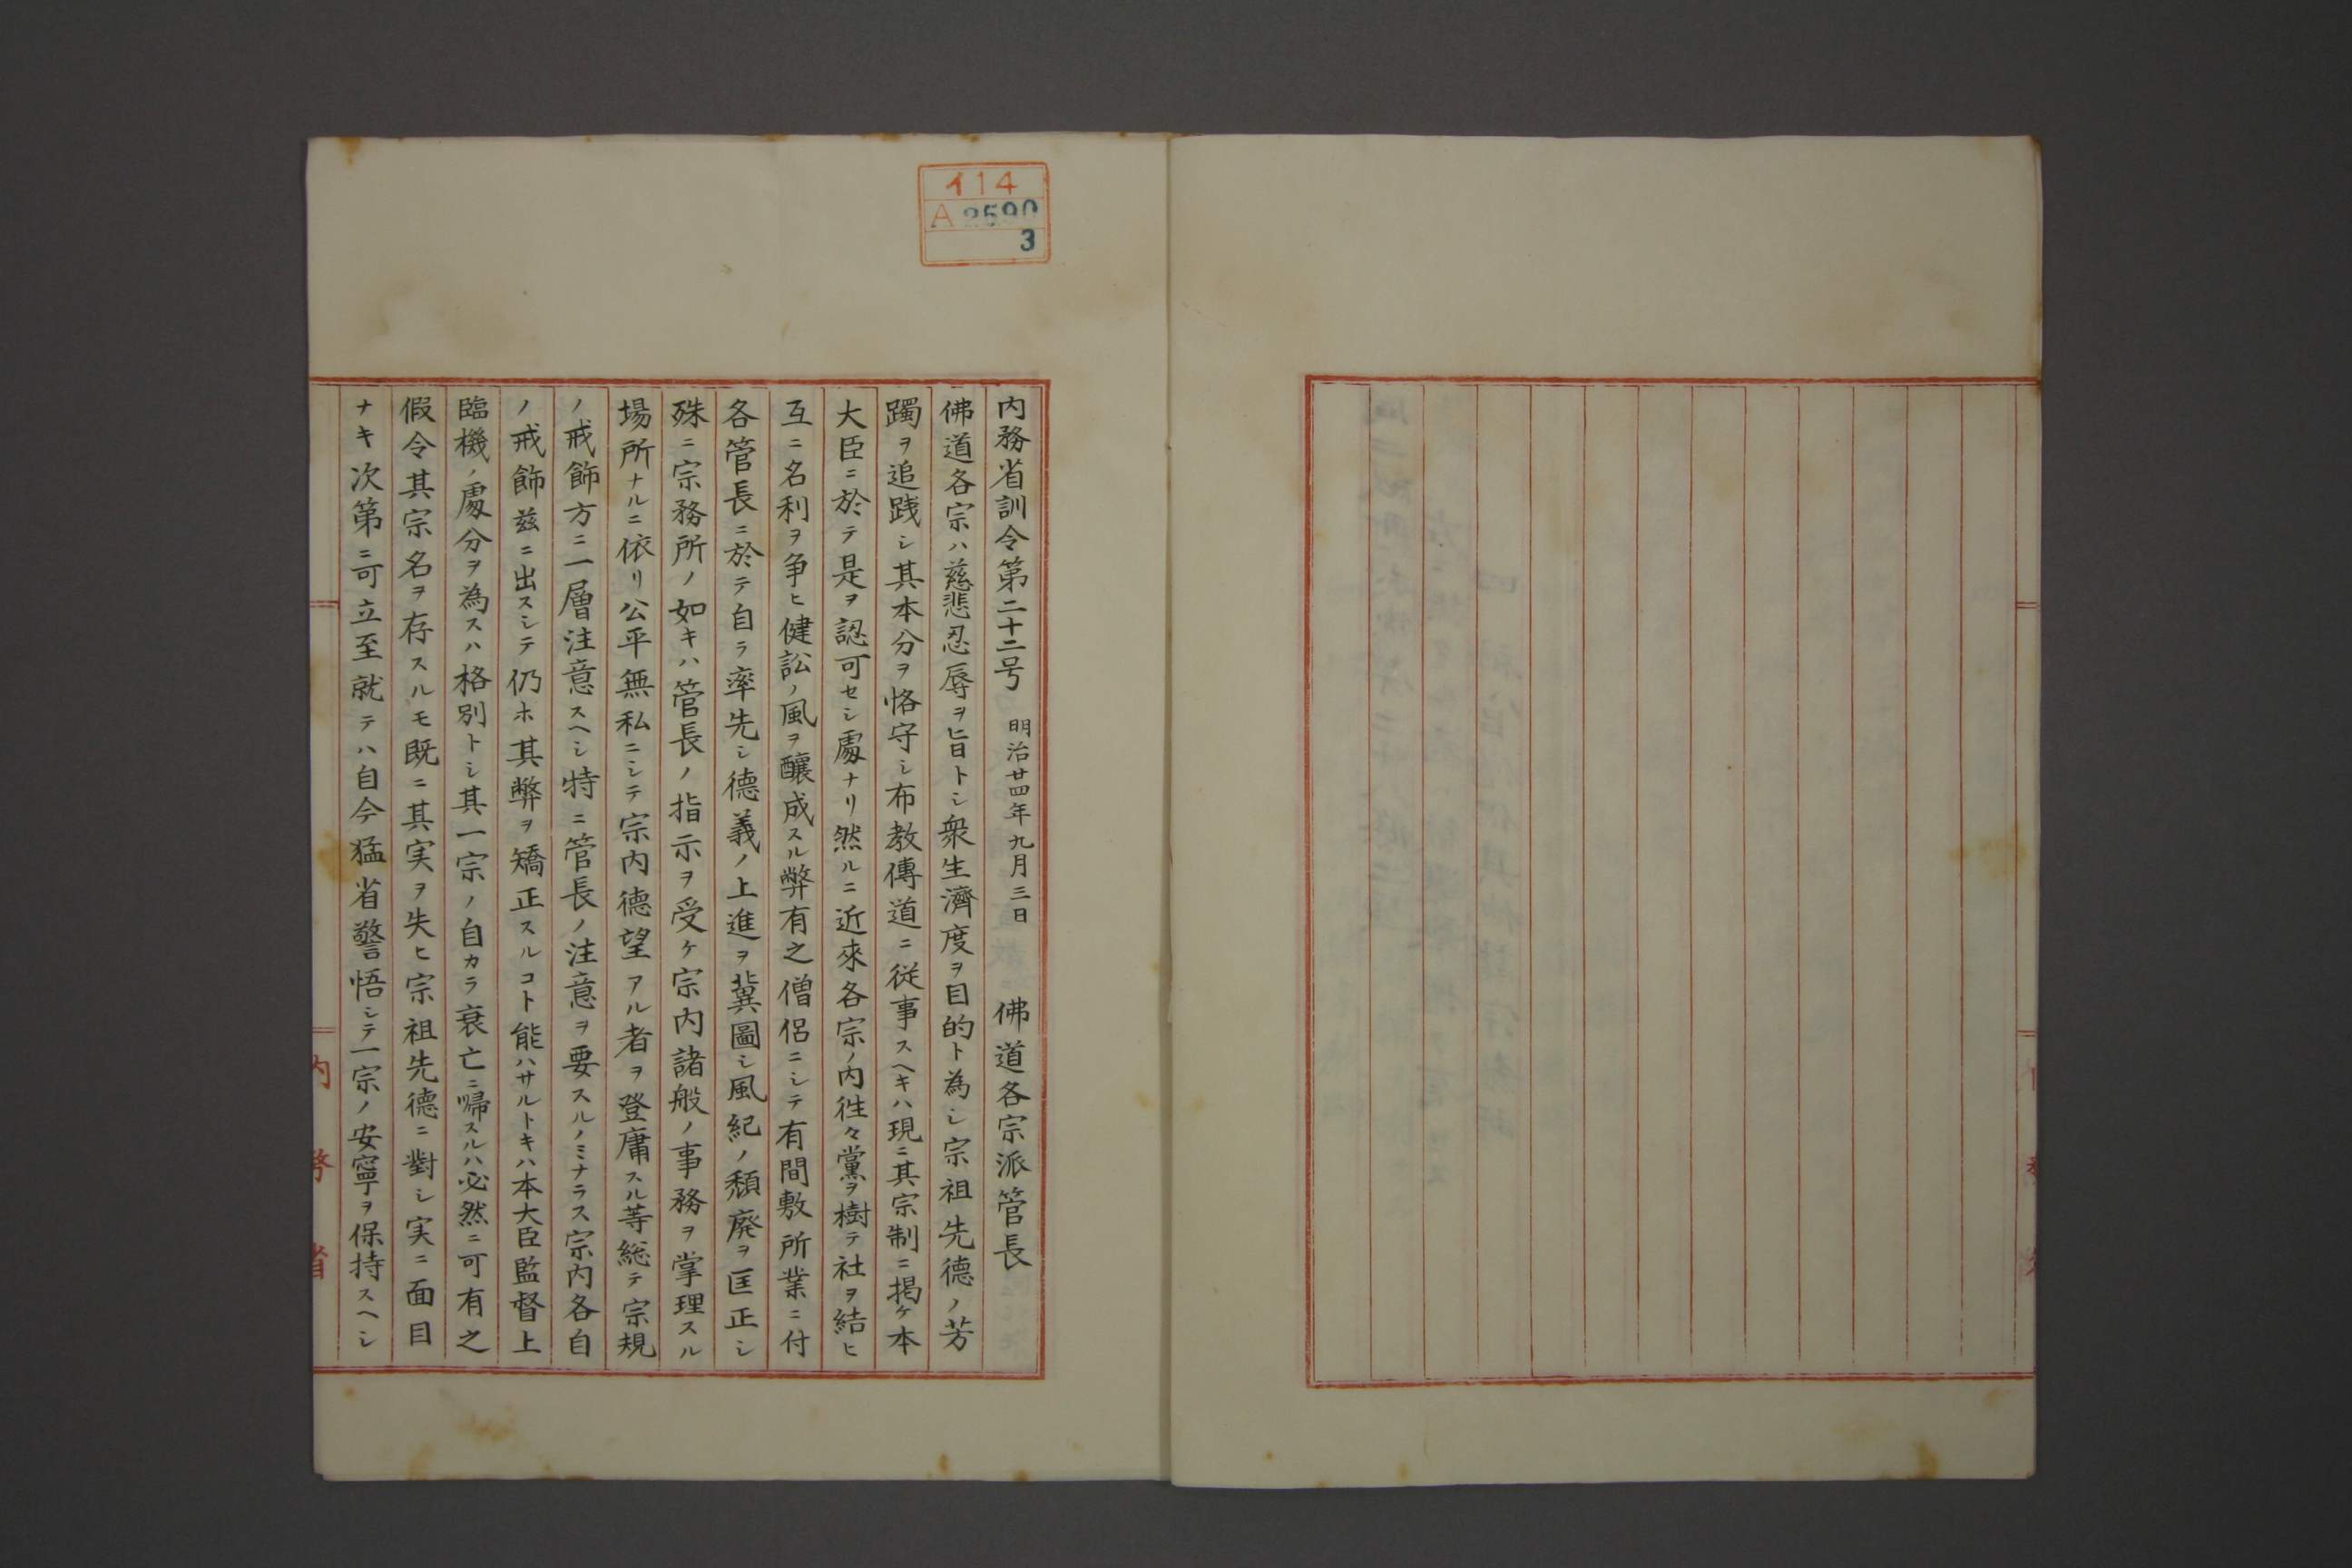 イ14
A 2590
3
内務省訓令第二十二号 明治廿四年九月三日 佛道各宗派管長
佛道各宗ハ慈悲忍辱ヲ旨トシ衆生濟度ヲ目的ト為シ宗祖先徳ノ芳
躅ヲ追践シ其本分ヲ恪守シ布教傳道ニ従事スヘキハ現ニ其宗制ニ掲ケ本
大臣ニ於テ是ヲ認可セシ處ナリ然ルニ近來各宗ノ内徃々黨ヲ樹テ社ヲ結ヒ
互ニ名利ヲ争ヒ健訟ノ風ヲ釀成スル弊有之僧侶ニシテ有間敷所業ニ付
各管長ニ於テ自ラ率先シ德義ノ上進ヲ冀圖シ風紀ノ頽廃ヲ匡正シ
殊ニ宗務所ノ如キハ管長ノ指示ヲ受ケ宗内諸般ノ事務ヲ掌理スル
場所ナルニ依リ公平無私ニシテ宗内德望アル者ヲ登庸スル等総テ宗規
ノ戒飾方ニ一層注意スヘシ特ニ管長ノ注意ヲ要スルノミナラス宗内各自
ノ戒飾茲ニ出スシテ仍ホ其弊ヲ矯正スルコト能ハサルトキハ本大臣監督上
臨機ノ處分ヲ為スハ格別トシ其一宗ノ自カラ衰亡ニ帰スルハ必然ニ可有之
假令其宗名ヲ存スルモ既ニ其実ヲ失ヒ宗祖先德ニ對シ実ニ面目
ナキ次第ニ可立至就テハ自今猛省警悟シテ一宗ノ安寧ヲ保持スヘシ
内務省